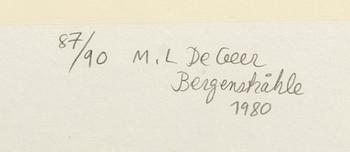 87/90 M.L De Geer
Bergenstråhle
1980